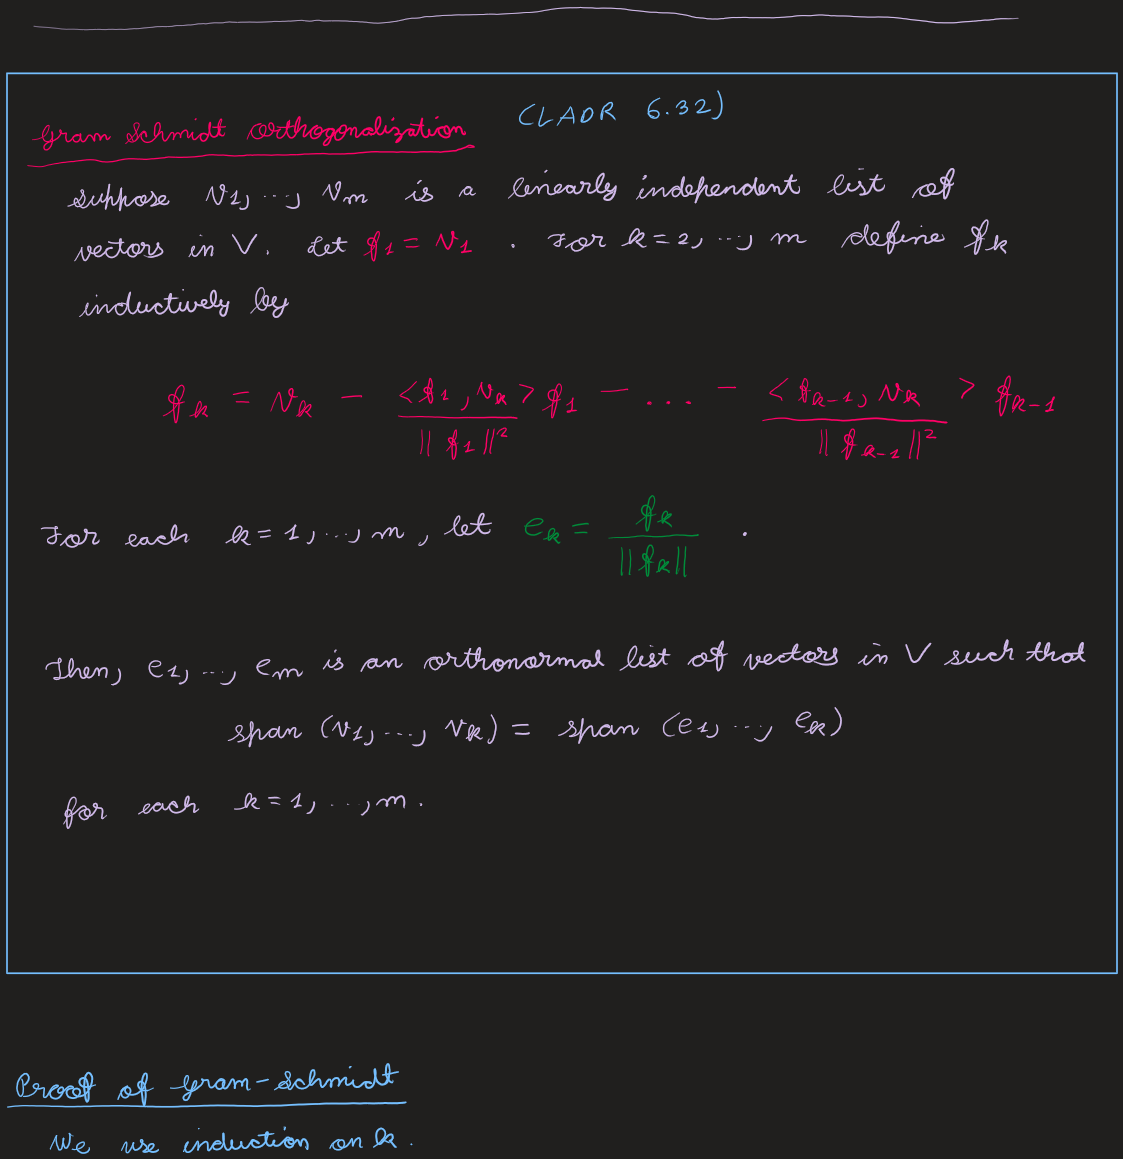 Gram Schmidt Orthogonalization (LADR 6.32)
Suppose v1, ..., vm is a linearly independent list of
vectors in V. Let f1 = v1 . For k = 2, ..., m define fk
inductively by
fk = vk - <f1, vk> / ||f1||² f1 - ... - <fk-1, vk> / ||fk-1||² fk-1
For each k = 1, ..., m, let ek = fk / ||fk|| .
Then, e1, ..., em is an orthonormal list of vectors in V such that
span (v1, ..., vk) = span (e1, ..., ek)
for each k = 1, ..., m.
Proof of Gram-Schmidt
We use induction on k.